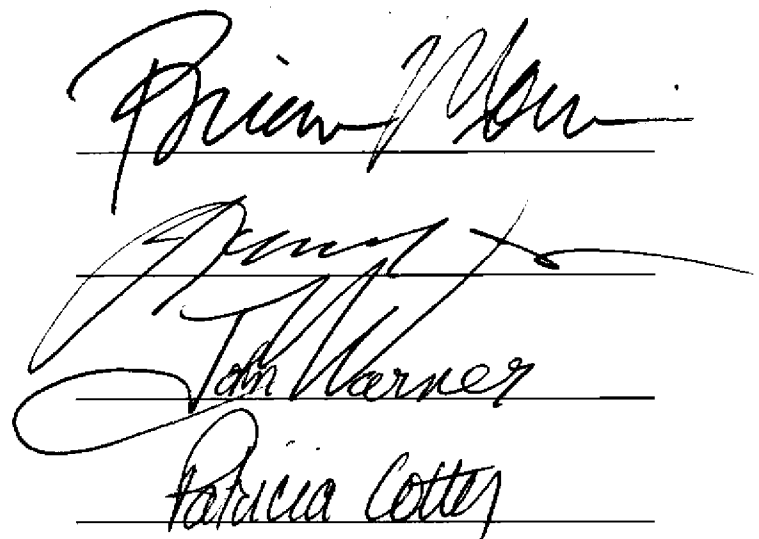 Brian Morris
John Warner
Patricia Cotter